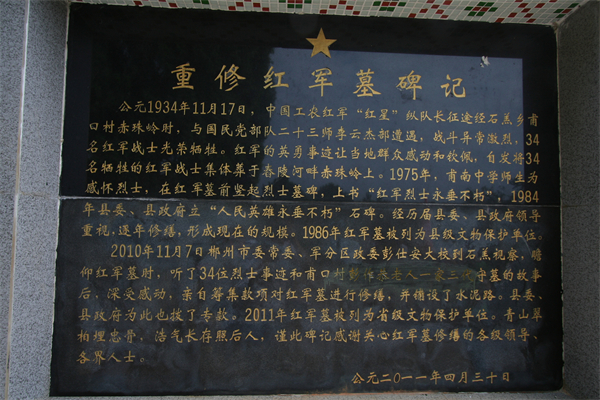 重修红军墓碑记
公元1934年11月17日，中国工农红军“红星”纵队长征途经石羔乡甫
口村赤珠岭时，与国民党部队二十三师李云杰部遭遇，战斗异常激烈，34
名红军战士光荣牺牲。红军的英勇事迹让当地群众感动和钦佩，自发将34
名牺牲的红军战士集体葬于舂陵河畔赤珠岭上。1975年，甫南中学师生为
感怀烈士，在红军墓前竖起烈士墓碑，上书“红军烈士永垂不朽”，1984
年县委、县政府立“人民英雄永垂不朽”石碑。经历届县委、县政府领导
重视，逐年修缮，形成现在的规模。1986年红军墓被列为县级文物保护单位。
2010年11月7日郴州市委常委、军分区政委彭仕安大校到石羔视察，瞻
仰红军墓时，听了34位烈士事迹和甫口村彭 老人一家三 守墓的故事
后，深受感动，亲自筹集款项对红军墓进行修缮，并铺设了水泥路。县委、
县政府为此也拨了专款。2011年红军墓被列为省级文物保护单位。青山翠
柏埋忠骨，浩气长存照后人，谨此碑记感谢关心红军墓修缮的各级领导、
各界人士。
公元二〇一一年四月三十日